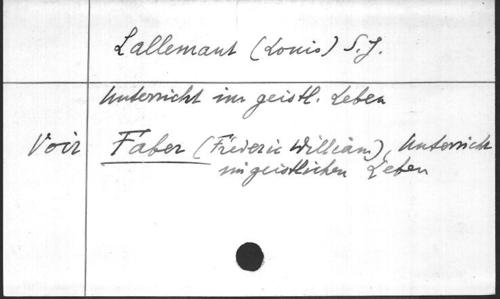 Lallemant (Louis) S.J.
Unterricht im geistl. Leben
Voir Faber (Frederic William), Unterricht
im geistlichen Leben